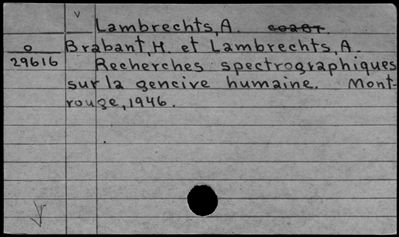 v Lambrechts, A.
o Brabant, H. et Lambrechts, A.
29616 Recherches spectrographiques
sur la gencive humaine. Mont-
rouge, 1946.